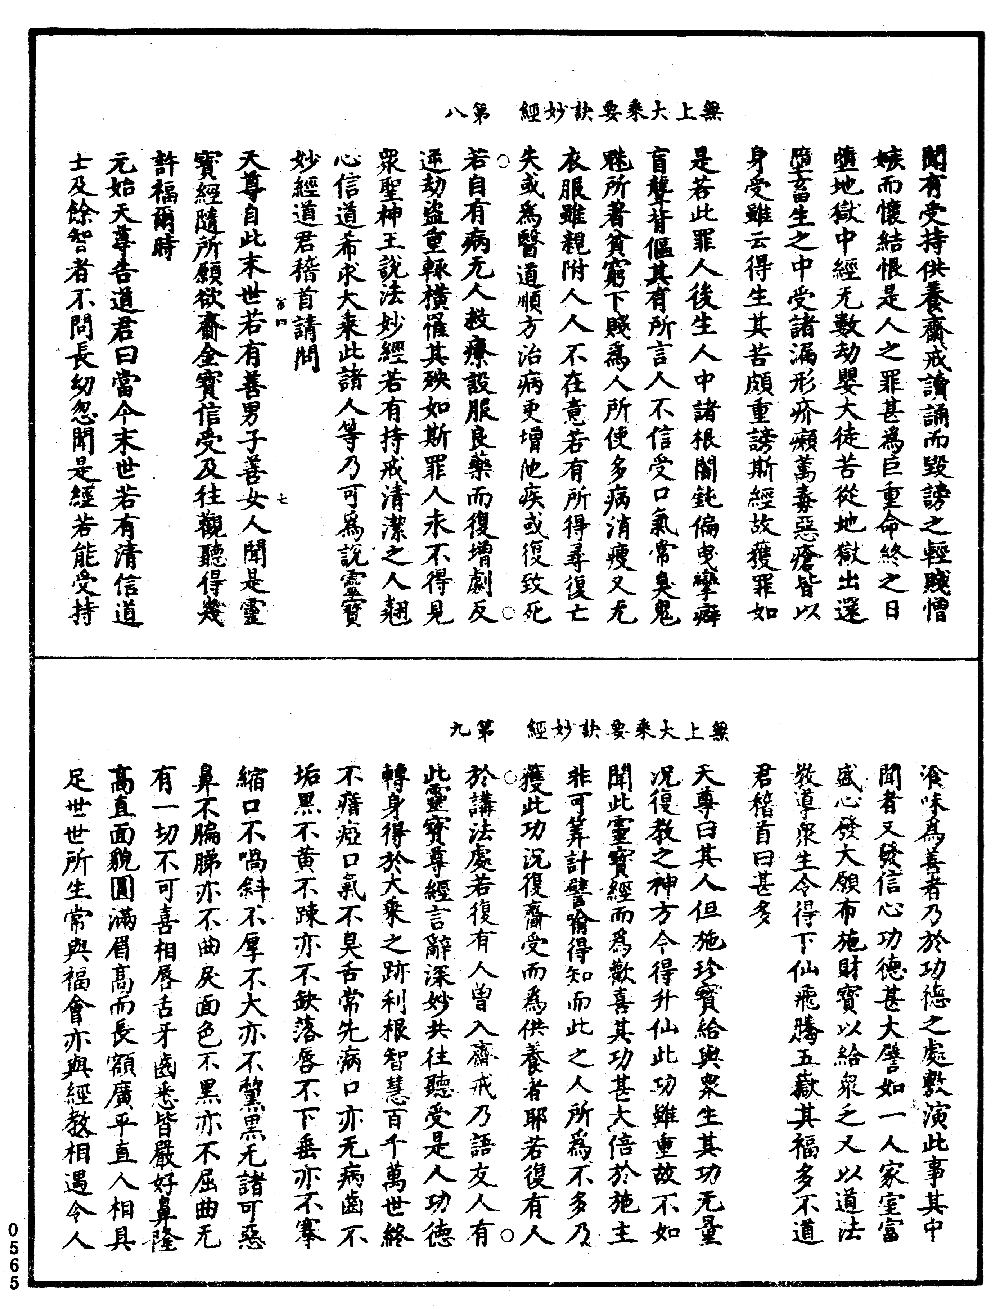 無上大乘要訣妙經　第八
聞有受持供養齋戒讀誦而毀謗之輕賤憎
嫉而懷結恨是人之罪甚為巨重命終之日
墮地獄中經无數劫嬰大徒苦從地獄出還
墮畜生之中受諸漏形疥癩萬毒惡瘡皆以
身受雖云得生其苦頗重謗斯經故獲罪如
是若此罪人後生人中諸根闇鈍偏曳攣癖
盲聾背傴其有所言人不信受口氣常臭鬼
魅所著貧窮下賤為人所使多病消瘦又无
衣服雖親附人人不在意若有所得尋復亡
失或為醫道順方治病更增他疾或復致死
若自有病无人救療設服良藥而復增劇反
逆劫盜重輒橫罹其殃如斯罪人永不得見
眾聖神王說法妙經若有持戒清潔之人翹
心信道希求大乘此諸人等乃可為說靈寶
妙經道君稽首請問
百四　七
天尊自此末世若有善男子善女人聞是靈
寶經隨所願欲齋金寶信受及往觀聽得幾
許福爾時
元始天尊告道君曰當今末世若有清信道
士及餘智者不問長幼忽聞是經若能受持
無上大乘要訣妙經　第九
飡味為善者乃於功德之處敷演此事其中
聞者又發信心功德甚大譬如一人家室富
盛心發大願布施財寶以給眾乏又以道法
教導眾生令得下仙飛騰五嶽其福多不道
君稽首曰甚多
天尊曰其人但施珍寶給與眾生其功无量
況復教之神方令得升仙此功雖重故不如
聞此靈寶經而為歡喜其功甚大倍於施主
非可筭計譬喻得知而此之人所為不多乃
獲此功況復齋受而為供養者耶若復有人
於講法處若復有人曾入齋戒乃語友人有
此靈寶尊經言辭深妙共往聽受是人功德
轉身得於大乘之跡利根智慧百千萬世終
不瘖瘂口氣不臭舌常先病口亦无病齒不
垢黑不黃不踈亦不缺落唇不下垂亦不搴
縮口不喎斜不厚不大亦不黧黑无諸可惡
鼻不騙䏲亦不曲戾面色不黑亦不屈曲无
有一切不可喜相唇舌牙齒悉皆嚴好鼻隆
高直面貌圓滿眉高而長額廣平直人相具
足世世所生常與福會亦與經教相遇令人
0565